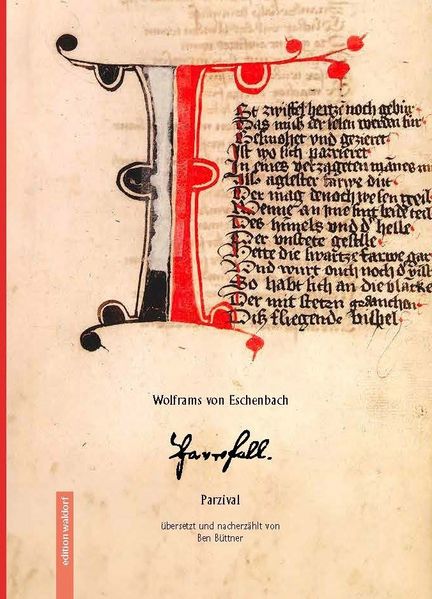 ISt zwiffel hertzē noch gebur
Das muß der selen werden sur
Gesmohet vnd gezieret
Ist wo sich parrieret
In eines verzageten mānes
Als aglester varwe dut
Der mag denoch wesen geil
Wenne an ime sint beide teil
Des himels vnd d' helle
Der vnstete geselle
Hette die swartze varwe gar
Vnd wurt ouch noch d'
So habt sich an die blancke
Der mit steten gedancken
Dis fliegende bispel
Wolframs von Eschenbach
Parzival
übersetzt und nacherzählt von
Ben Büttner
edition waldorf